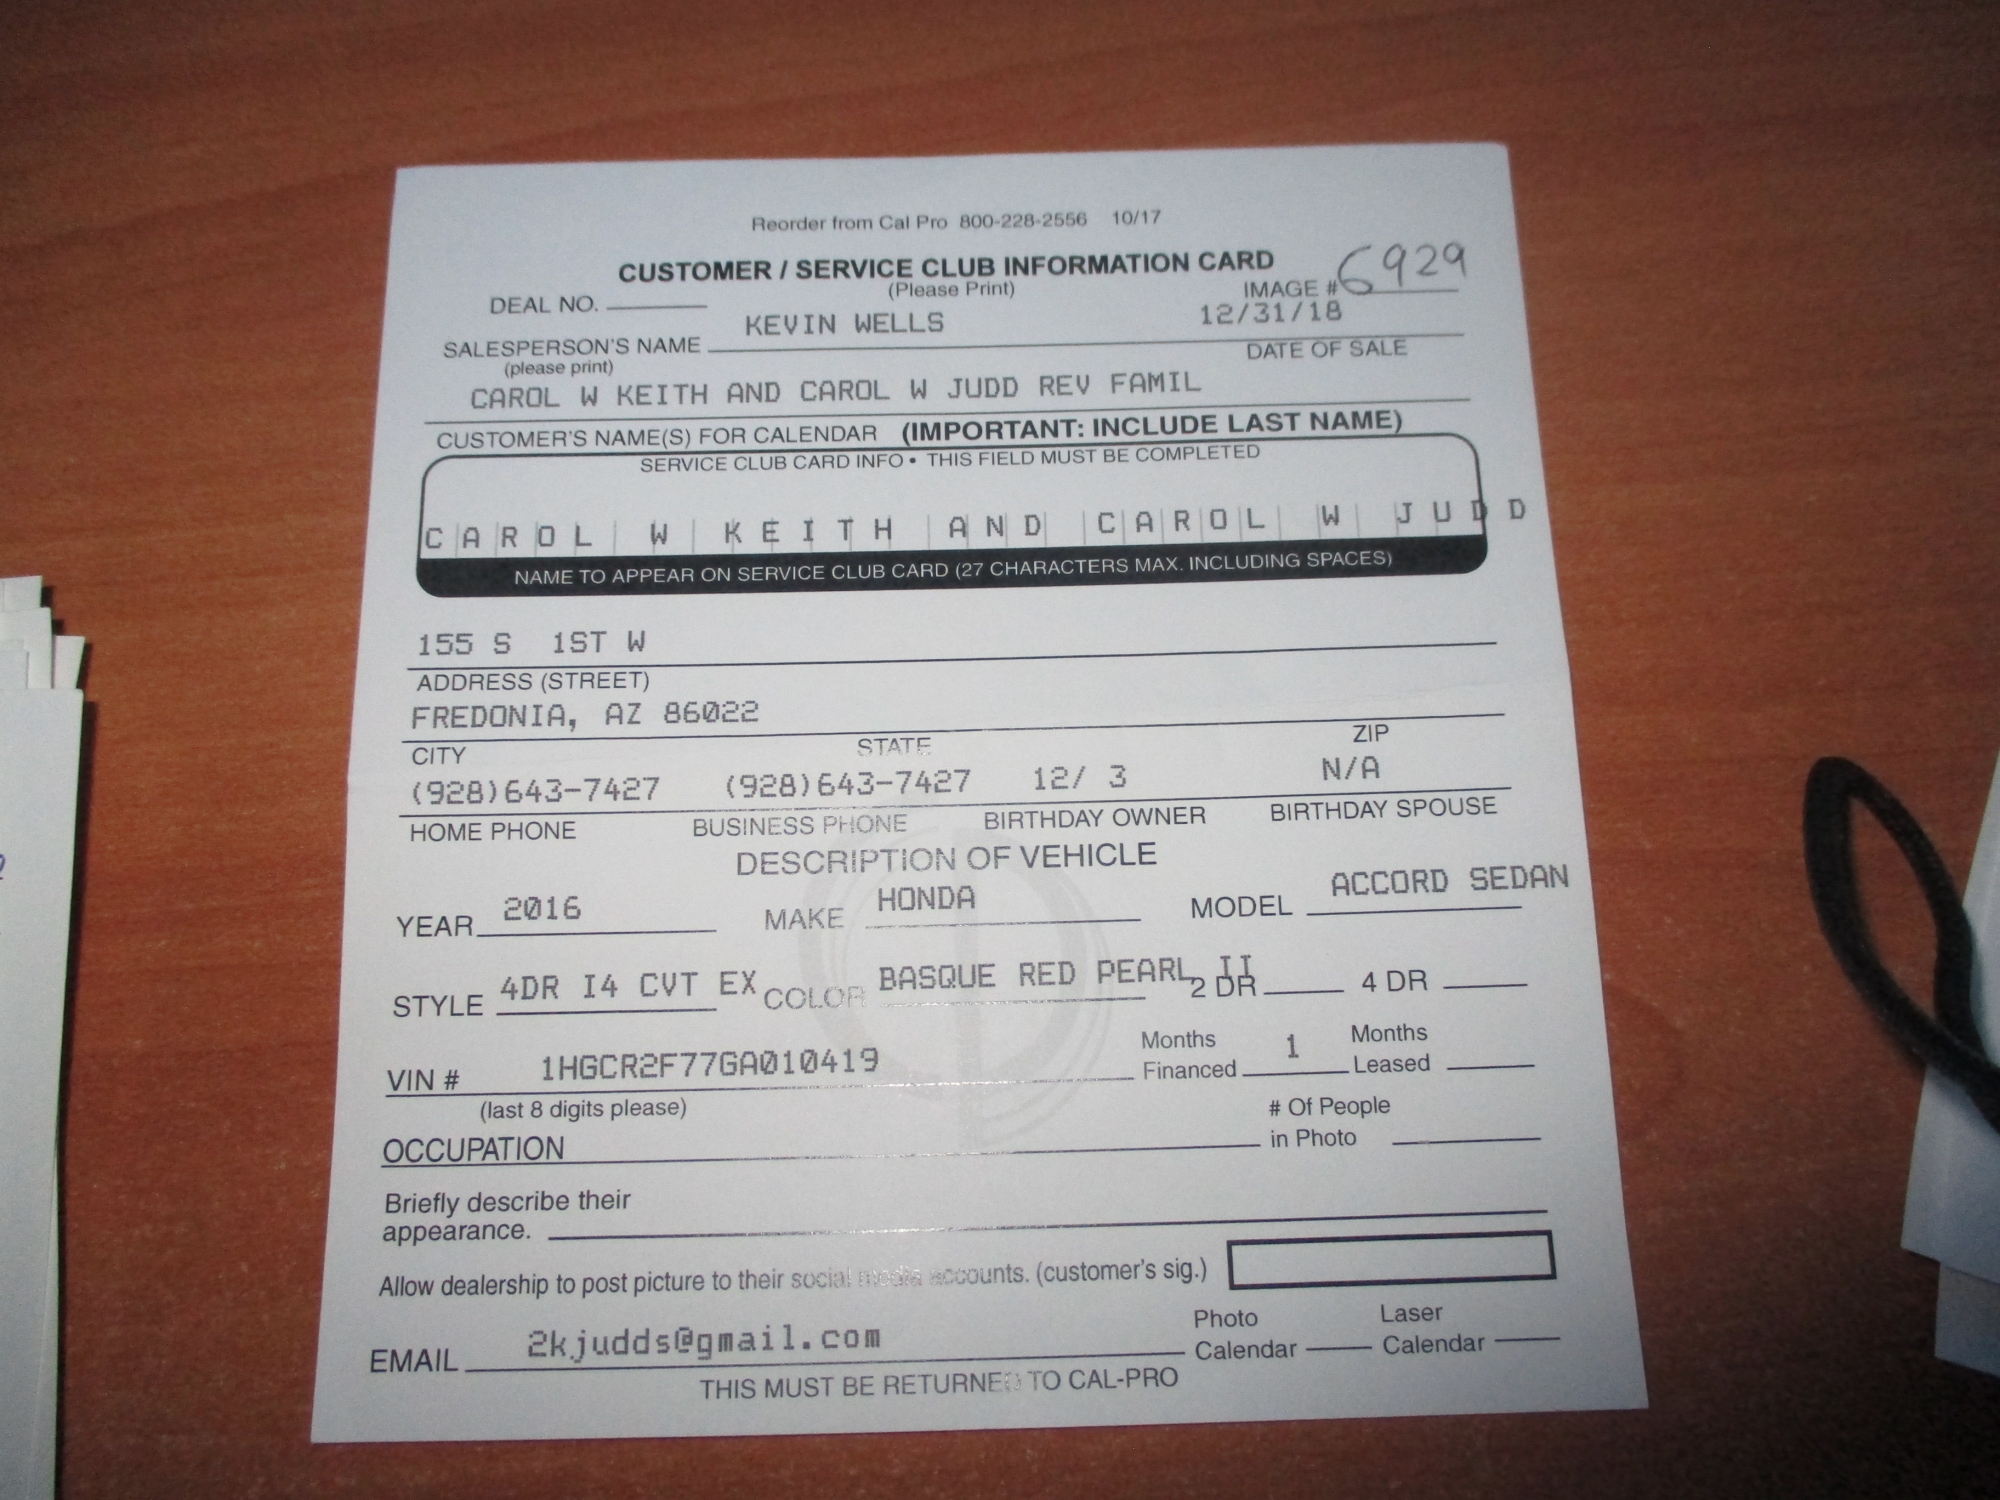 Reorder from Cal Pro 800-228-2556 10/17
CUSTOMER / SERVICE CLUB INFORMATION CARD
(Please Print)
IMAGE # 6929
DEAL NO.
KEVIN WELLS 12/31/18
SALESPERSON'S NAME DATE OF SALE
(please print)
CAROL W KEITH AND CAROL W JUDD REV FAMIL
CUSTOMER'S NAME(S) FOR CALENDAR (IMPORTANT: INCLUDE LAST NAME)
SERVICE CLUB CARD INFO • THIS FIELD MUST BE COMPLETED
CAROL W KEITH AND CAROL W JUDD
NAME TO APPEAR ON SERVICE CLUB CARD (27 CHARACTERS MAX. INCLUDING SPACES)
155 S 1ST W
ADDRESS (STREET)
FREDONIA, AZ 86022
CITY STATE ZIP
(928)643-7427 (928)643-7427 12/ 3 N/A
HOME PHONE BUSINESS PHONE BIRTHDAY OWNER BIRTHDAY SPOUSE
DESCRIPTION OF VEHICLE
YEAR 2016 MAKE HONDA MODEL ACCORD SEDAN
STYLE 4DR I4 CVT EX COLOR BASQUE RED PEARL II 2 DR 4 DR
VIN # 1HGCR2F77GA010419 Months Financed 1 Months Leased
(last 8 digits please)
OCCUPATION # Of People in Photo
Briefly describe their
appearance.
Allow dealership to post picture to their social media accounts. (customer's sig.)
EMAIL 2kjudds@gmail.com Photo Calendar Laser Calendar
THIS MUST BE RETURNED TO CAL-PRO